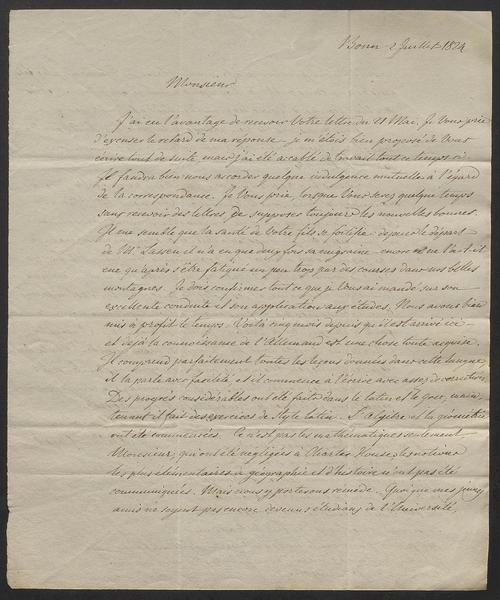 Bonn 2 Juillet 1824
Monsieur
J'ai eu l'avantage de recevoir Votre lettre du 21 Mai. Je Vous prie
d'excuser le retard de ma réponse je m'étois bien proposé de Vous
écrire tout de suite, mais j'ai été accablé de travail tout ce temps ci.
Il faudra bien nous accorder quelque indulgence mutuelle à l'égard
de la correspondance. Je Vous prie, lorsque Vous serez quelque temps
sans recevoir des lettres de supposer toujours les nouvelles bonnes.
Il me semble que la santé de Votre fils se fortifie: depuis le départ
de Mr. Lassen il n'a eu que deux fois sa migraine encore ne l'a-t-il
eue qu'après s'être fatigué un peu trop par des courses dans nos belles
montagnes. Je dois confirmer tout ce que je Vous ai mandé sur son
excellente conduite et son application aux études. Nous avons bien
mis à profit le temps. Voilà cinq mois depuis qu'il est arrivé ici
et déjà la connoissance de l'Allemand est une chose toute acquise.
Il comprend parfaitement toutes les leçons données dans cette langue
il la parle avec facilité, et il commence à l'écrire avec assez de correction.
Des progrès considérables ont été faits dans le latin et le grec, main,
tenant il fait des exercices de style latin. L'algèbre et la géométrie
ont été commencées. Ce n'est pas les mathématiques seulement
Monsieur, qui ont été négligées à Charter House, les notions
les plus élémentaires de géographie et d'histoire n'ont pas été
communiquées. Mais nous y porterons remède. Quoique mes jeunes
amis ne soyent pas encore devenus étudians de l'Université,